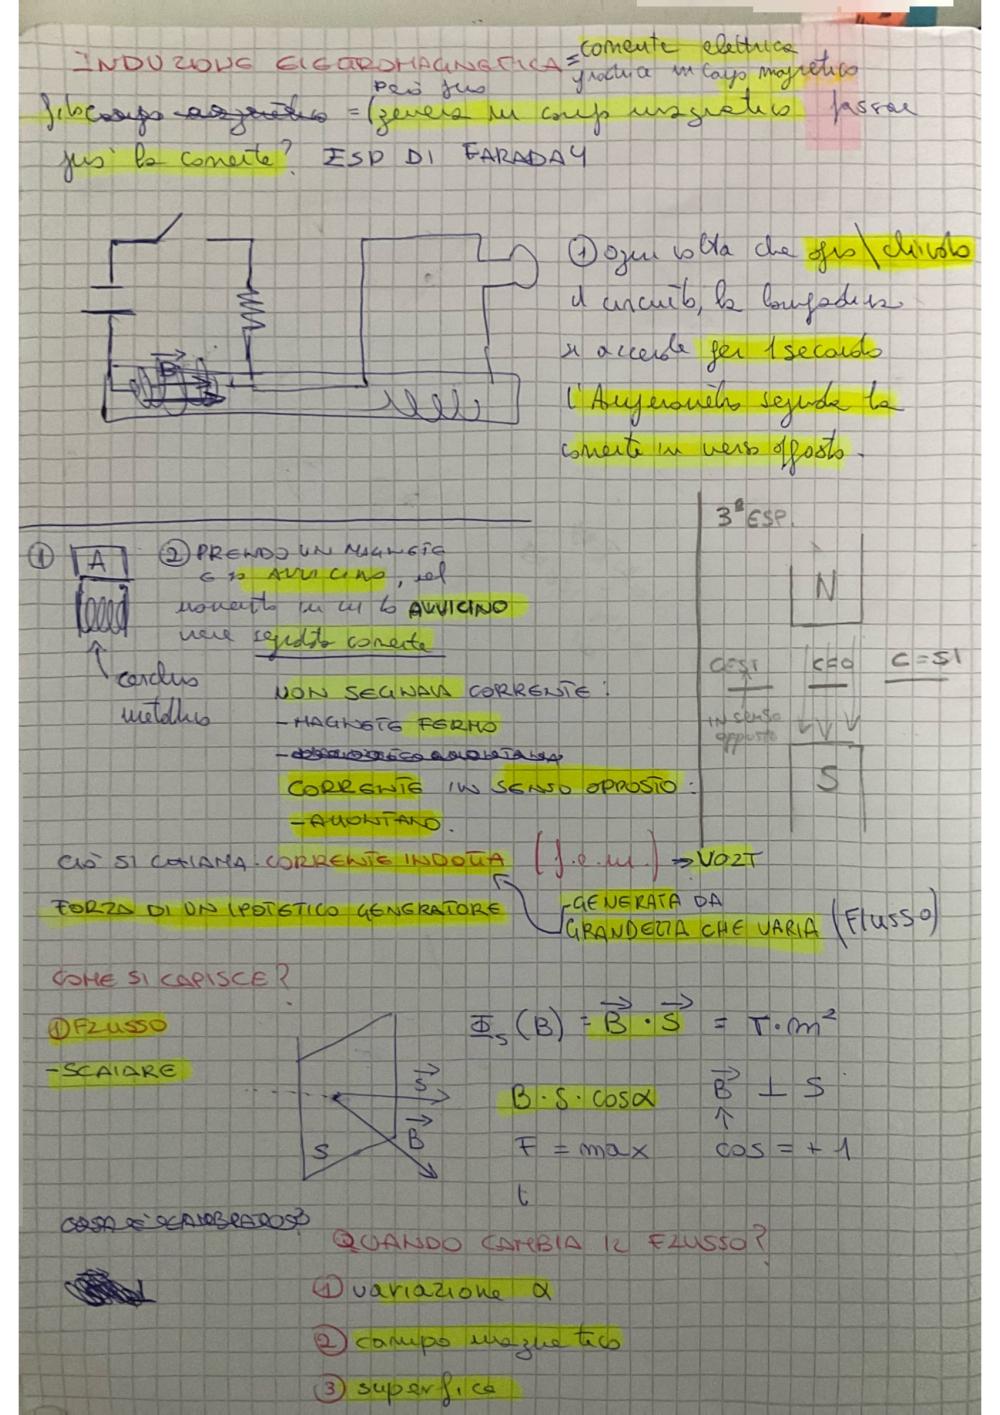 INDUZIONE ELETTROMAGNETICA = corrente elettrica
produce un campo magnetico
Però può
filo = (genera un campo magnetico passare
più la corrente? ESP DI FARADAY
① Ogni volta che apro\chiudo
il circuito, la lampadina
si accende per 1 secondo
l'Amperometro segnala la
corrente in verso opposto.
B
① A
② PRENDO UN MAGNETE
E lo AVVICINO, nel
momento in cui lo AVVICINO
viene segnalata corrente
metallico
NON SEGNALA CORRENTE:
- MAGNETE FERMO
CORRENTE IN SENSO OPPOSTO:
- ALLONTANO.
3ª ESP.
N
C=SI C=0 C=SI
IN senso
opposto
S
CIÒ SI CHIAMA CORRENTE INDOTTA (f.e.m.) → VOLT
FORZA DI UN IPOTETICO GENERATORE
- GENERATA DA
GRANDEZZA CHE VARIA (Flusso)
COME SI CAPISCE?
① FLUSSO
- SCALARE
S
S
B
Φs (B) = B · S = T·m²
B·S·cosα B ⊥ S
F = max cos = + 1
QUANDO CAMBIA IL FLUSSO?
① variazione α
② campo magnetico
③ superfice